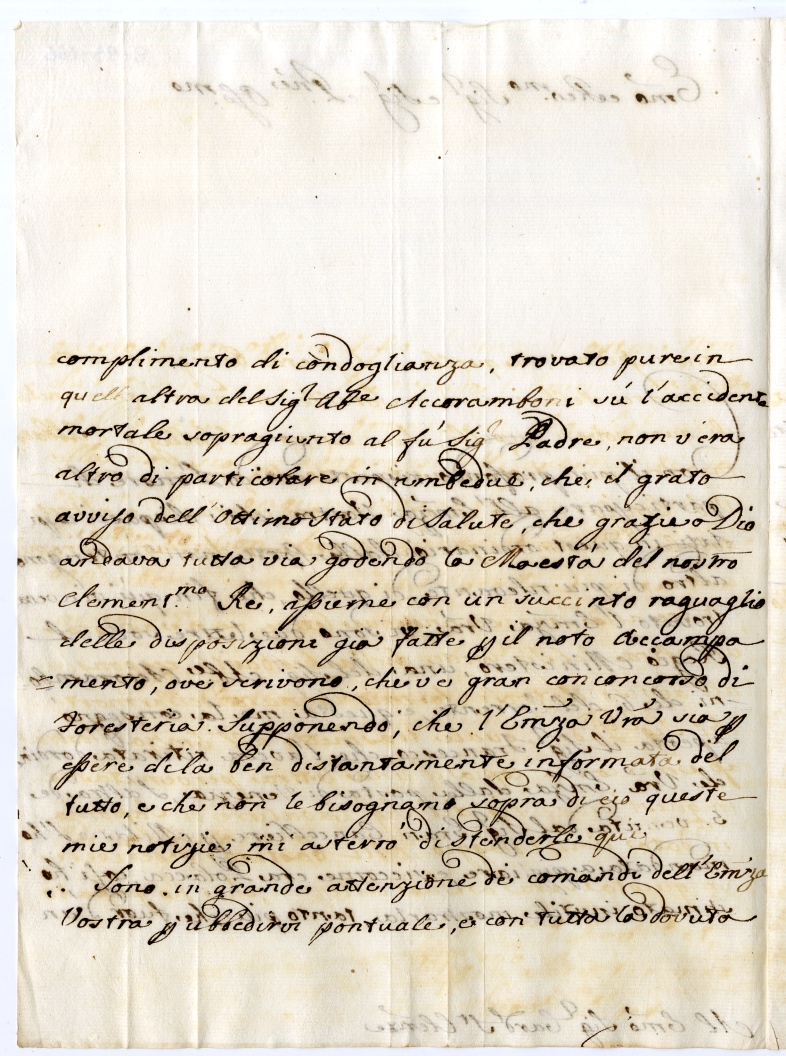 complimento di condoglianza, trovato pure in
quell altra del Sig.r Ab.e Accoramboni sú l'accidente
mortale sopragiunto al fú Sig.r Padre, non v'era
altro di particolare in ambedue, che il grato
avviso dell'Ottimo Stato di Salute, che grazie a Dio
andava tutta via godendo la Maestá del nostro
Clement.mo Re, assieme con un succinto raguaglio
delle disposizioni giá fatte p il noto Accampa
mento, ove scrivono, che v'e gran concorso di
Foresteria. Supponendo, che l'Em̃za Vrã sia p
essere di la ben distantamente informata del
tutto, e che non le bisognano sopra di ció queste
mie notizie mi asterró di stenderle qui
Sono in grande attenzione de comandi dell'Em̃za
Vostra p ubbedirvi pontuale, e con tutta la dovuta